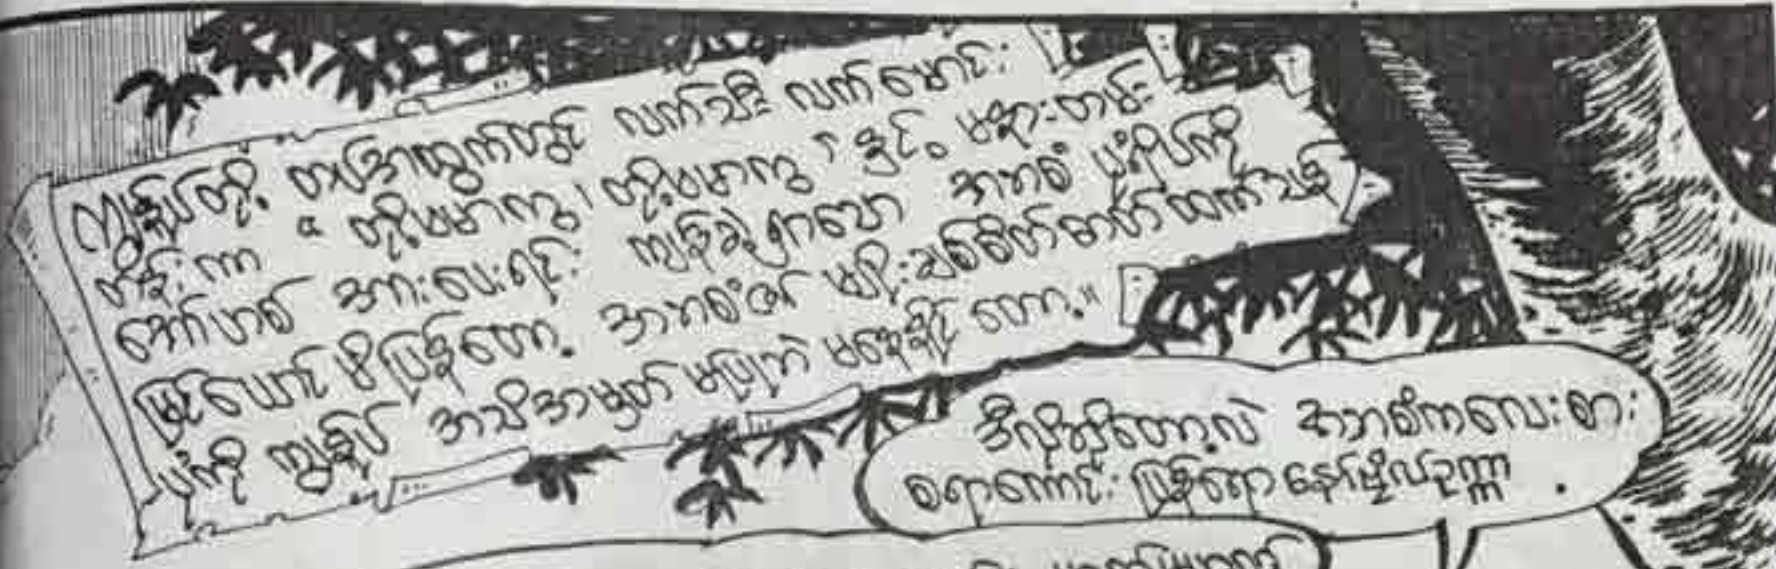 ကျွန်ုပ်တို့ တပ်အထွက်တွင် လက်သီး လက်မောင်း
တန်းကာ " တို့ဗမာကွ၊ တို့ဗမာကွ " နှင့် မနားတမ်း
အော်ဟစ် အားပေးရင်း ကျန်ခဲ့ရှာသော အဘစံ ပုံရိပ်ကို
မြင်ယောင်မိပြန်တော့ အဘစံ၏ မျိုးချစ်စိတ်ဓာတ်ထက်သန်
ပုံကို ကျွန်ုပ် အသိအမှတ် မပြုဘဲ မနေနိုင် တော့။
ဒီလိုဆိုတော့လဲ အဘစံကလေးစား
စရာကောင်း ပြန်ရော နော်မိုလ်ဥက္ကာ